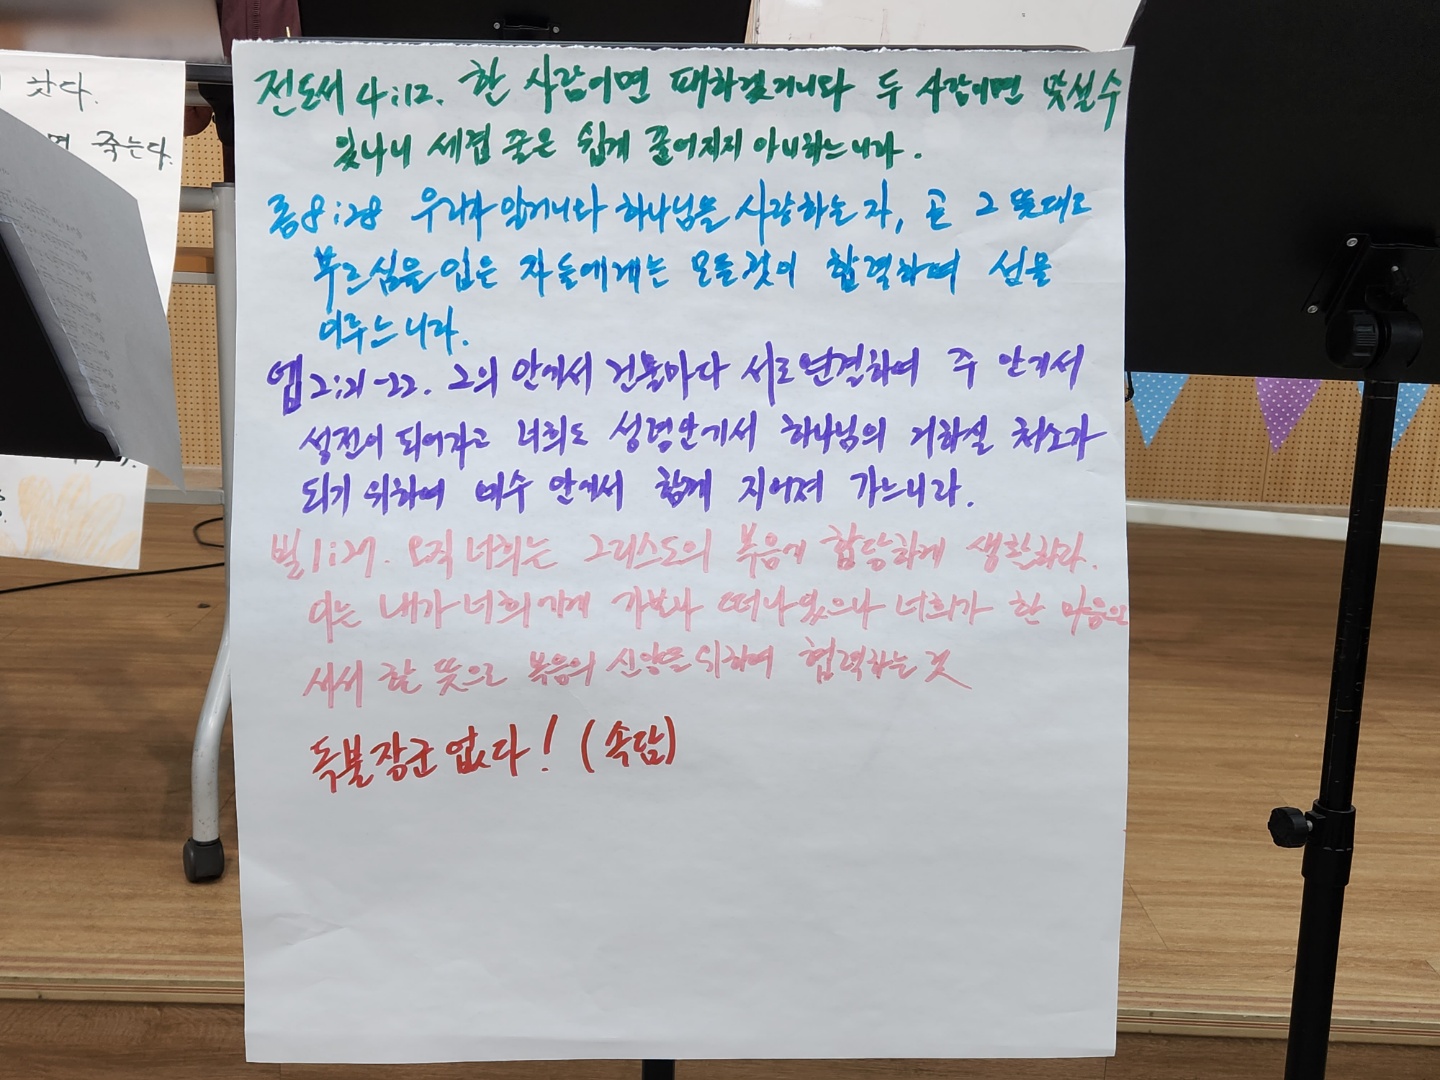 갔다.
면 죽는다.
전도서 4:12. 한 사람이면 패하겠거니와 두 사람이면 맞설수
있나니 세겹 줄은 쉽게 끊어지지 아니하느니라.
롬8:28 우리가 알거니와 하나님을 사랑하는 자, 곧 그 뜻대로
부르심을 입은 자들에게는 모든것이 합력하여 선을
이루느니라.
엡2:21-22. 그의 안에서 건물마다 서로연결하여 주 안에서
성전이 되어가고 너희도 성령안에서 하나님의 거하실 처소가
되기 위하여 예수 안에서 함께 지어져 가느니라.
빌1:27. 오직 너희는 그리스도의 복음에 합당하게 생활하라.
이는 내가 너희에게 가보나 떠나있으나 너희가 한 마음으로
서서 한 뜻으로 복음의 신앙을 위하여 협력하는 것
독불장군 없다! (속담)